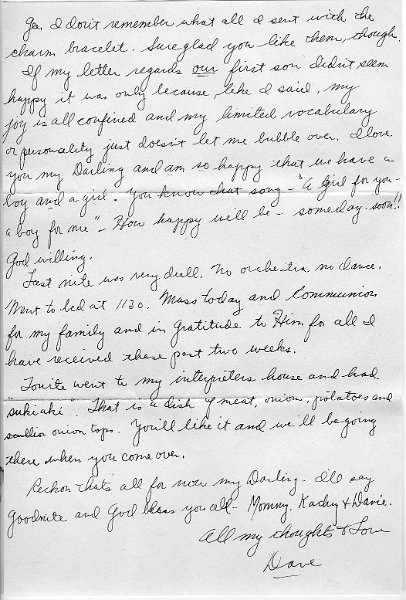 Gee I don't remember what all I sent with the
charm bracelet. Sure glad you like them, though.
If my letter regards our first son didn't seem
happy it was only because, like I said, my
joy is all confined and my limited vocabulary
or personality just doesn't let me bubble over. I love
you my Darling and am so happy that we have a
boy and a girl. You know that song - "A Girl for you -
a boy for me" - How happy we'll be - someday - soon!!
God willing.
Last nite was very dull. No orchestra, no dance.
Went to bed at 1130. Mass today and Communion
for my family and in Gratitude to Him for all I
have received these past two weeks.
Tonite went to my interpreters house and had
"sukiaki". That is a dish of meat, onion, potatoes and
scallion onion tops. You'll like it and we'll be going
there when you come over.
Reckon that's all for now my Darling - I'll say
Goodnite and God bless you all - Mommy, Kathy & Davie.
All my thoughts & Love
Dave